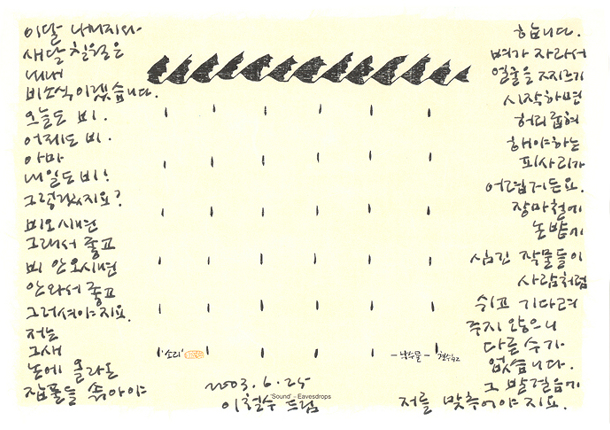 이달 나머지와
새달 칠월은
내내
비소식이겠습니다.
오늘도 비.
어제도 비.
아마
내일도 비!
그렇겠지요?
비오시면
그래서 좋고
비 안오시면
안와서 좋고
그러셔야지요.
저는
그새
논에 올라온
잡풀을 뽑아야
합니다.
벼가 자라서
얼굴을 찌르기
시작하면
허리굽혀
해야하는
피사리가
어렵거든요.
장마철에
논밭에
심긴 작물들이
사람처럼
쉬고 기다려
주지 않으니
다른 수가
없습니다.
그 발걸음에
저를 맞추어야지요.
'소리'
- 낙숫물 -
철수2
2003.6.25
'Sound' - Eavesdrops
이철수 드림